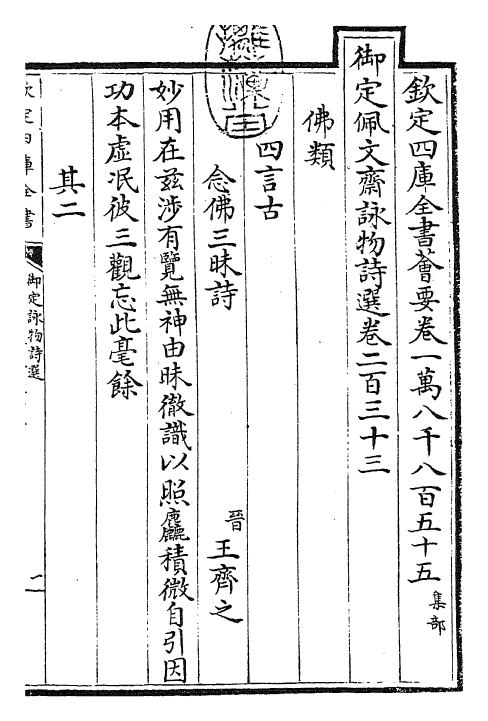 欽定四庫全書薈要卷一萬八千八百五十五 集部
御定佩文齋詠物詩選卷二百三十三
佛類
四言古
念佛三昧詩 晉 王齊之
妙用在茲涉有覽無神由昧徹識以照麤積微自引因
功本虛泯彼三觀忘此毫餘
其二
欽定四庫全書
御定詠物詩選
一